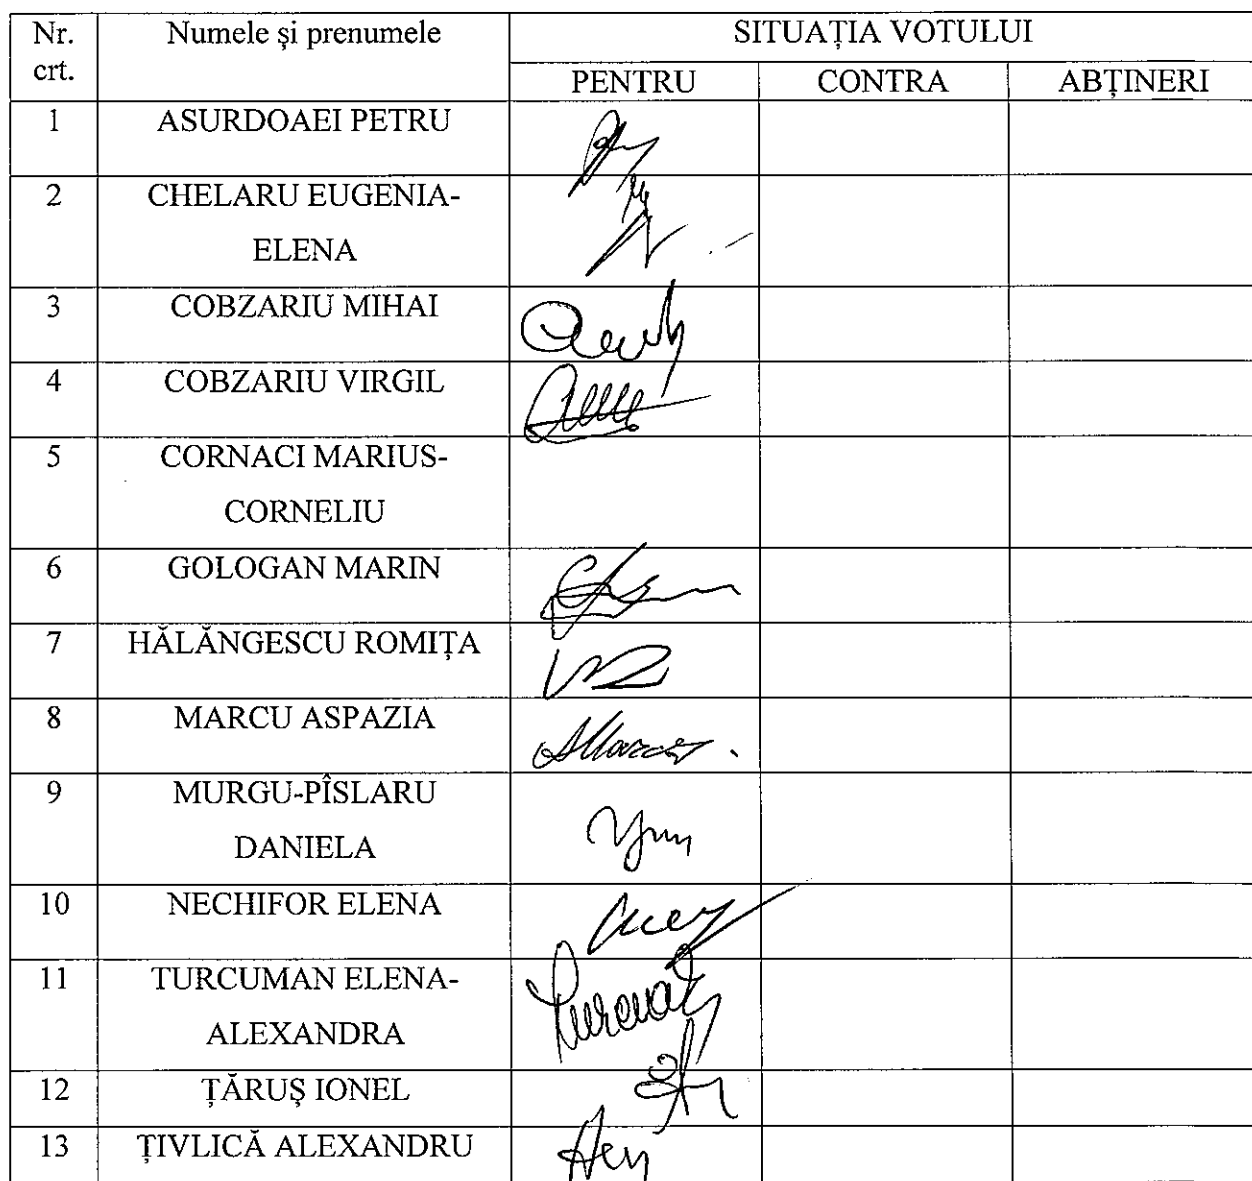 Nr. crt. Numele și prenumele SITUAȚIA VOTULUI
PENTRU CONTRA ABȚINERI
1 ASURDOAEI PETRU
2 CHELARU EUGENIA-
ELENA
3 COBZARIU MIHAI
4 COBZARIU VIRGIL
5 CORNACI MARIUS-
CORNELIU
6 GOLOGAN MARIN
7 HĂLĂNGESCU ROMIȚA
8 MARCU ASPAZIA
9 MURGU-PÎSLARU
DANIELA
10 NECHIFOR ELENA
11 TURCUMAN ELENA-
ALEXANDRA
12 ȚĂRUŞ IONEL
13 ȚIVLICĂ ALEXANDRU